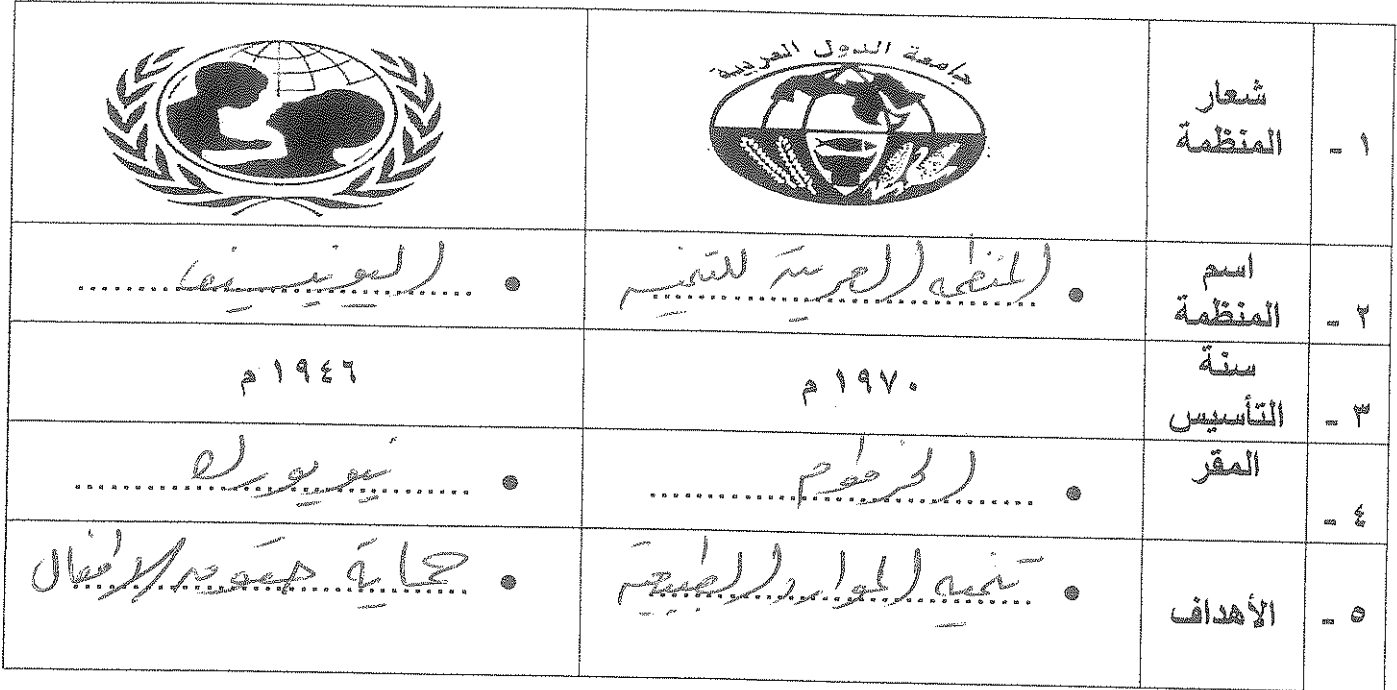 ١ - شعار المنظمة
جامعة الدول العربية
٢ - اسم المنظمة
• المنظمة العربية للتنمية
• اليونيسيف
٣ - سنة التأسيس
١٩٧٠ م
١٩٤٦ م
٤ - المقر
• الخرطوم
• نيويورك
٥ - الأهداف
• تنمية الموارد الطبيعية
• حماية حقوق الاطفال